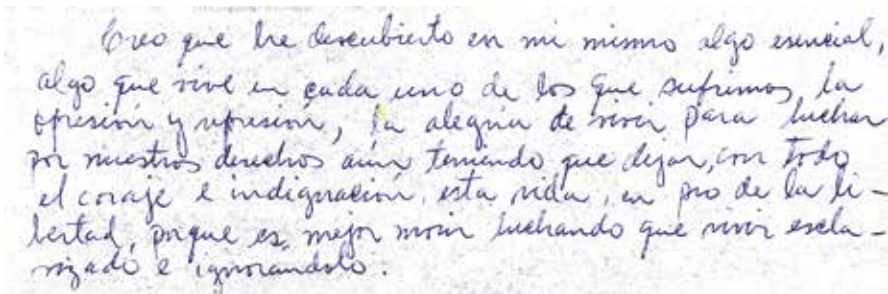 Creo que he descubierto en mi mismo algo esencial,
algo que vive en cada uno de los que sufrimos la
opresión y represión, la alegría de vivir para luchar
por nuestros derechos aún teniendo que dejar, con todo
el coraje e indignación, esta vida, en pro de la li-
bertad, porque es mejor morir luchando que vivir escla-
vizado e ignorandolo.